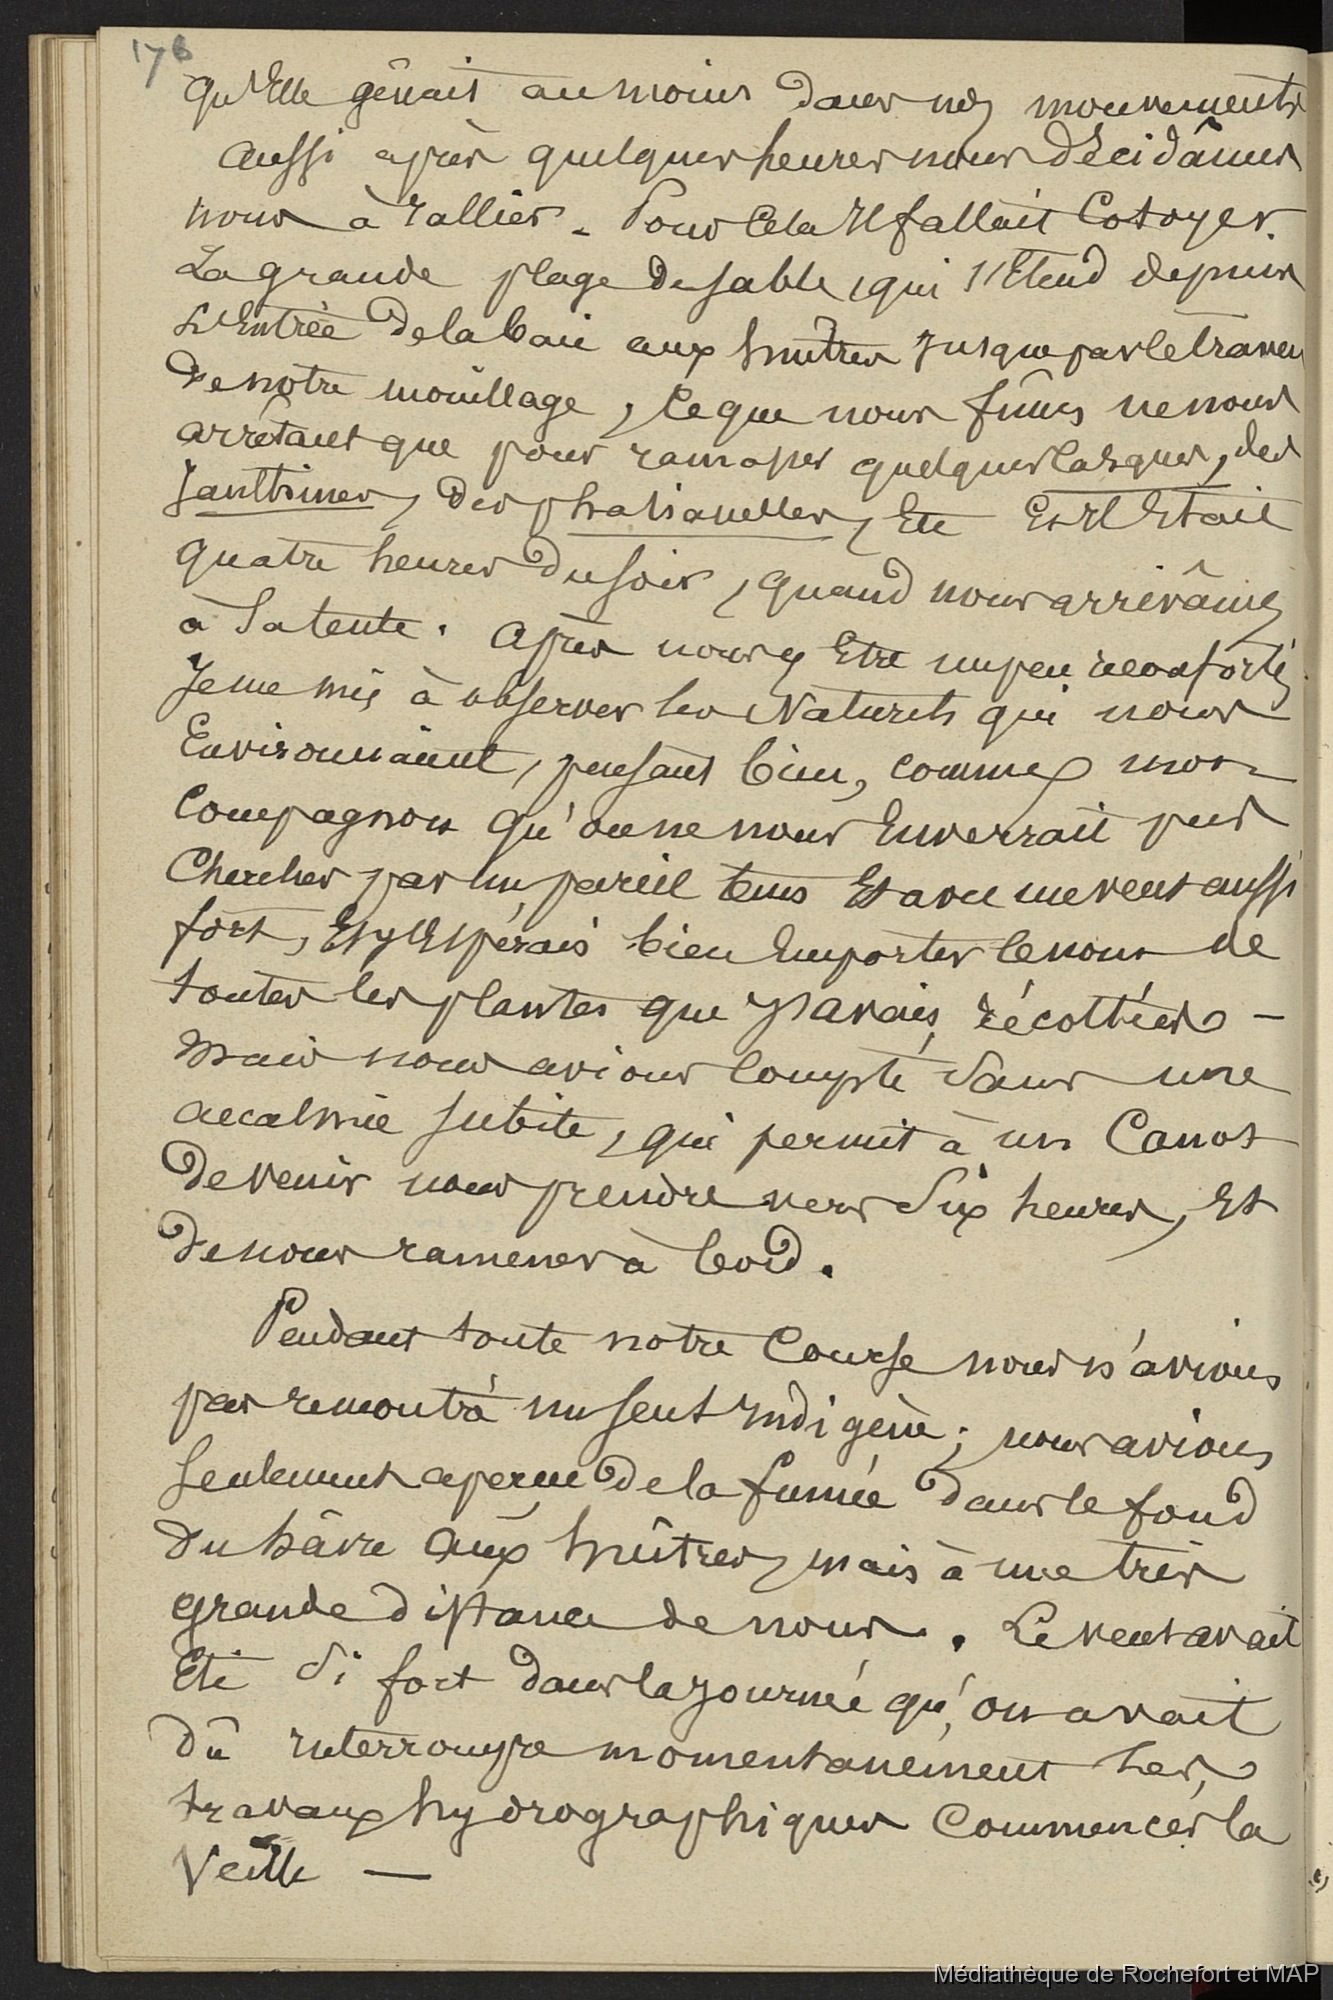 176
qu'Elle gênait au moins dans nos mouvements
Aussi après quelques heures nous décidâmes
nous à rallier. Pour Cela Il fallait Cotoyer.
La grande plage de sable, qui s'Etend depuis
L'Entrée de la baie aux huîtres Jusque par le travers
de notre mouillage, Ce que nous fîmes ne nous
arrêtant que pour ramasser quelques casques, des
Janthines, des phasianelles, Etc Et Il Etait
quatre heures du soir, quand nous arrivâmes
à la tente. Après nous y Etre un peu réconfortés
Je me mis à observer les Naturels qui nous
Environnaient, pensant bien, comme mon
Compagnon qu'on ne nous Enverrait pas
Chercher par un pareil tems Et avec un vent aussi
fort, Et J'Espérais bien Emporter le nom de
toutes les plantes que J'avais récoltées –
Mais nous avions compté sans une
accalmie subite, qui permit à un Canot
de venir nous prendre vers Six heures, Et
de nous ramener à bord.
Pendant toute notre Course nous n'avions
pas remontrà un seul Indigène; nous avions
seulement aperçu de la fumée dans le fond
du hâvre aux huîtres, mais à une très
grande distance de nous. Le vent avait
Eté Si fort dans la Journée qu'on avait
dû Interrompre momentanément les
travaux hydrographiques Commencés la
Veille —
Médiathèque de Rochefort et MAP